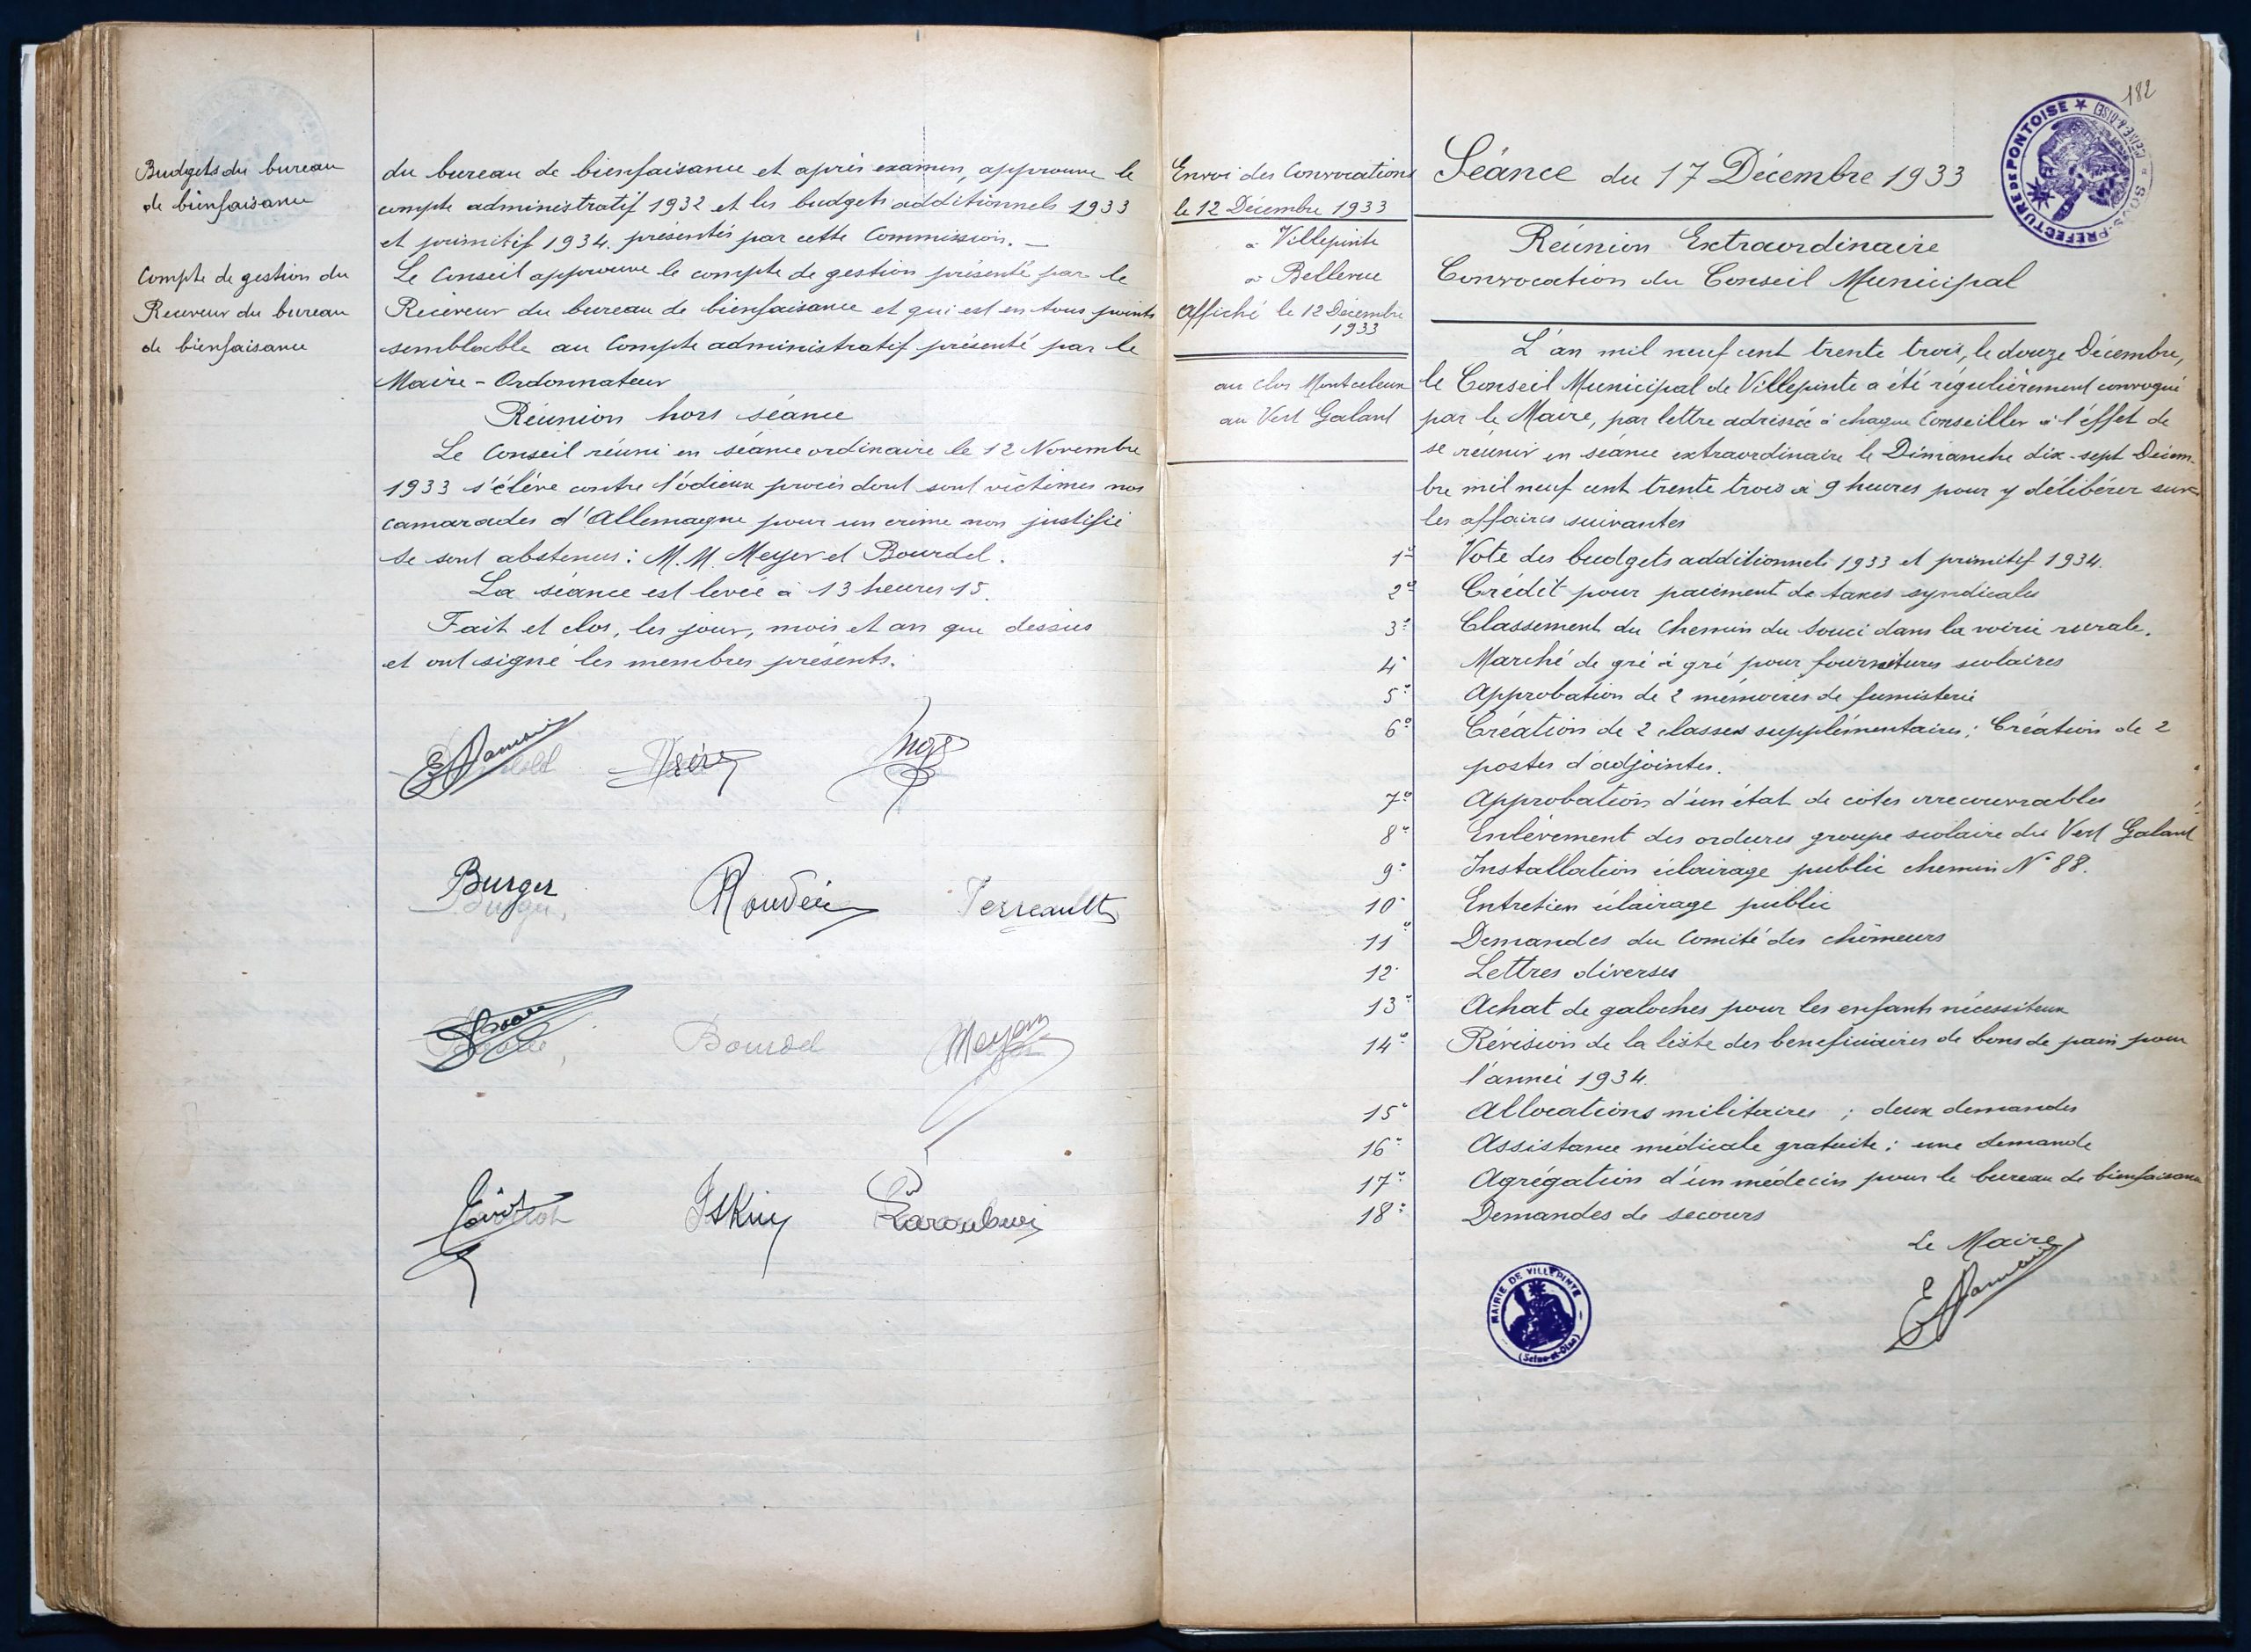 Budgets du bureau
de bienfaisance
Compte de gestion du
Receveur du bureau
de bienfaisance
du bureau de bienfaisance et après examen, approuve le
compte administratif 1932 et les budgets additionnels 1933
et primitif 1934. présentés par cette Commission. —
Le Conseil approuve le compte de gestion présenté par le
Receveur du bureau de bienfaisance et qui est en tous points
semblable au Compte administratif présenté par le
Maire - Ordonnateur
Réunion hors séance
Le Conseil réuni en séance ordinaire le 12 Novembre
1933 s'élève contre l'odieux procès dont sont victimes nos
camarades d'Allemagne pour un crime non justifié
Se sont abstenus : M.M. Meyer et Bourdel.
La séance est levée à 13 heures 15.
Fait et clos, les jour, mois et an que dessus
et ont signé les membres présents.
Burger
Perreault
Bourdel
Meyer
182
SOUS-PREFECTURE DE PONTOISE ★ (SEINE-&-OISE)
Envoi des Convocations
le 12 Décembre 1933
à Villepinte
à Bellevue
Affiché le 12 Décembre
1933
au clos Montceleux
au Vert Galant
Séance du 17 Décembre 1933
Réunion Extraordinaire
Convocation du Conseil Municipal
L'an mil neuf cent trente trois, le douze Décembre,
le Conseil Municipal de Villepinte a été régulièrement convoqué
par le Maire, par lettre adressée à chaque Conseiller à l'éffet de
se réunir en séance extraordinaire le Dimanche dix-sept Décem-
bre mil neuf cent trente trois à 9 heures pour y délibérer sur
les affaires suivantes
1° Vote des budgets additionnels 1933 et primitif 1934.
2° Crédit pour paiement de taxes syndicales
3° Classement du Chemin du Souci dans la voirie rurale.
4° Marché de gré à gré pour fournitures scolaires
5° Approbation de 2 mémoires de fumisterie
6° Création de 2 classes supplémentaires ; Création de 2
postes d'adjointes.
7° Approbation d'un état de cotes irrecouvrables
8° Enlèvement des ordures groupe scolaire du Vert Galant
9° Installation éclairage public chemin N° 88.
10° Entretien éclairage public
11° Demandes du Comité des chômeurs
12° Lettres diverses
13° Achat de galoches pour les enfants nécessiteux
14° Révision de la liste des beneficiaires de bons de pain pour
l'année 1934.
15° Allocations militaires ; deux demandes
16° Assistance médicale gratuite : une demande
17° Agrégation d'un médecin pour le bureau de bienfaisance
18° Demandes de secours
Le Maire
MAIRIE DE VILLEPINTE
(Seine-et-Oise)